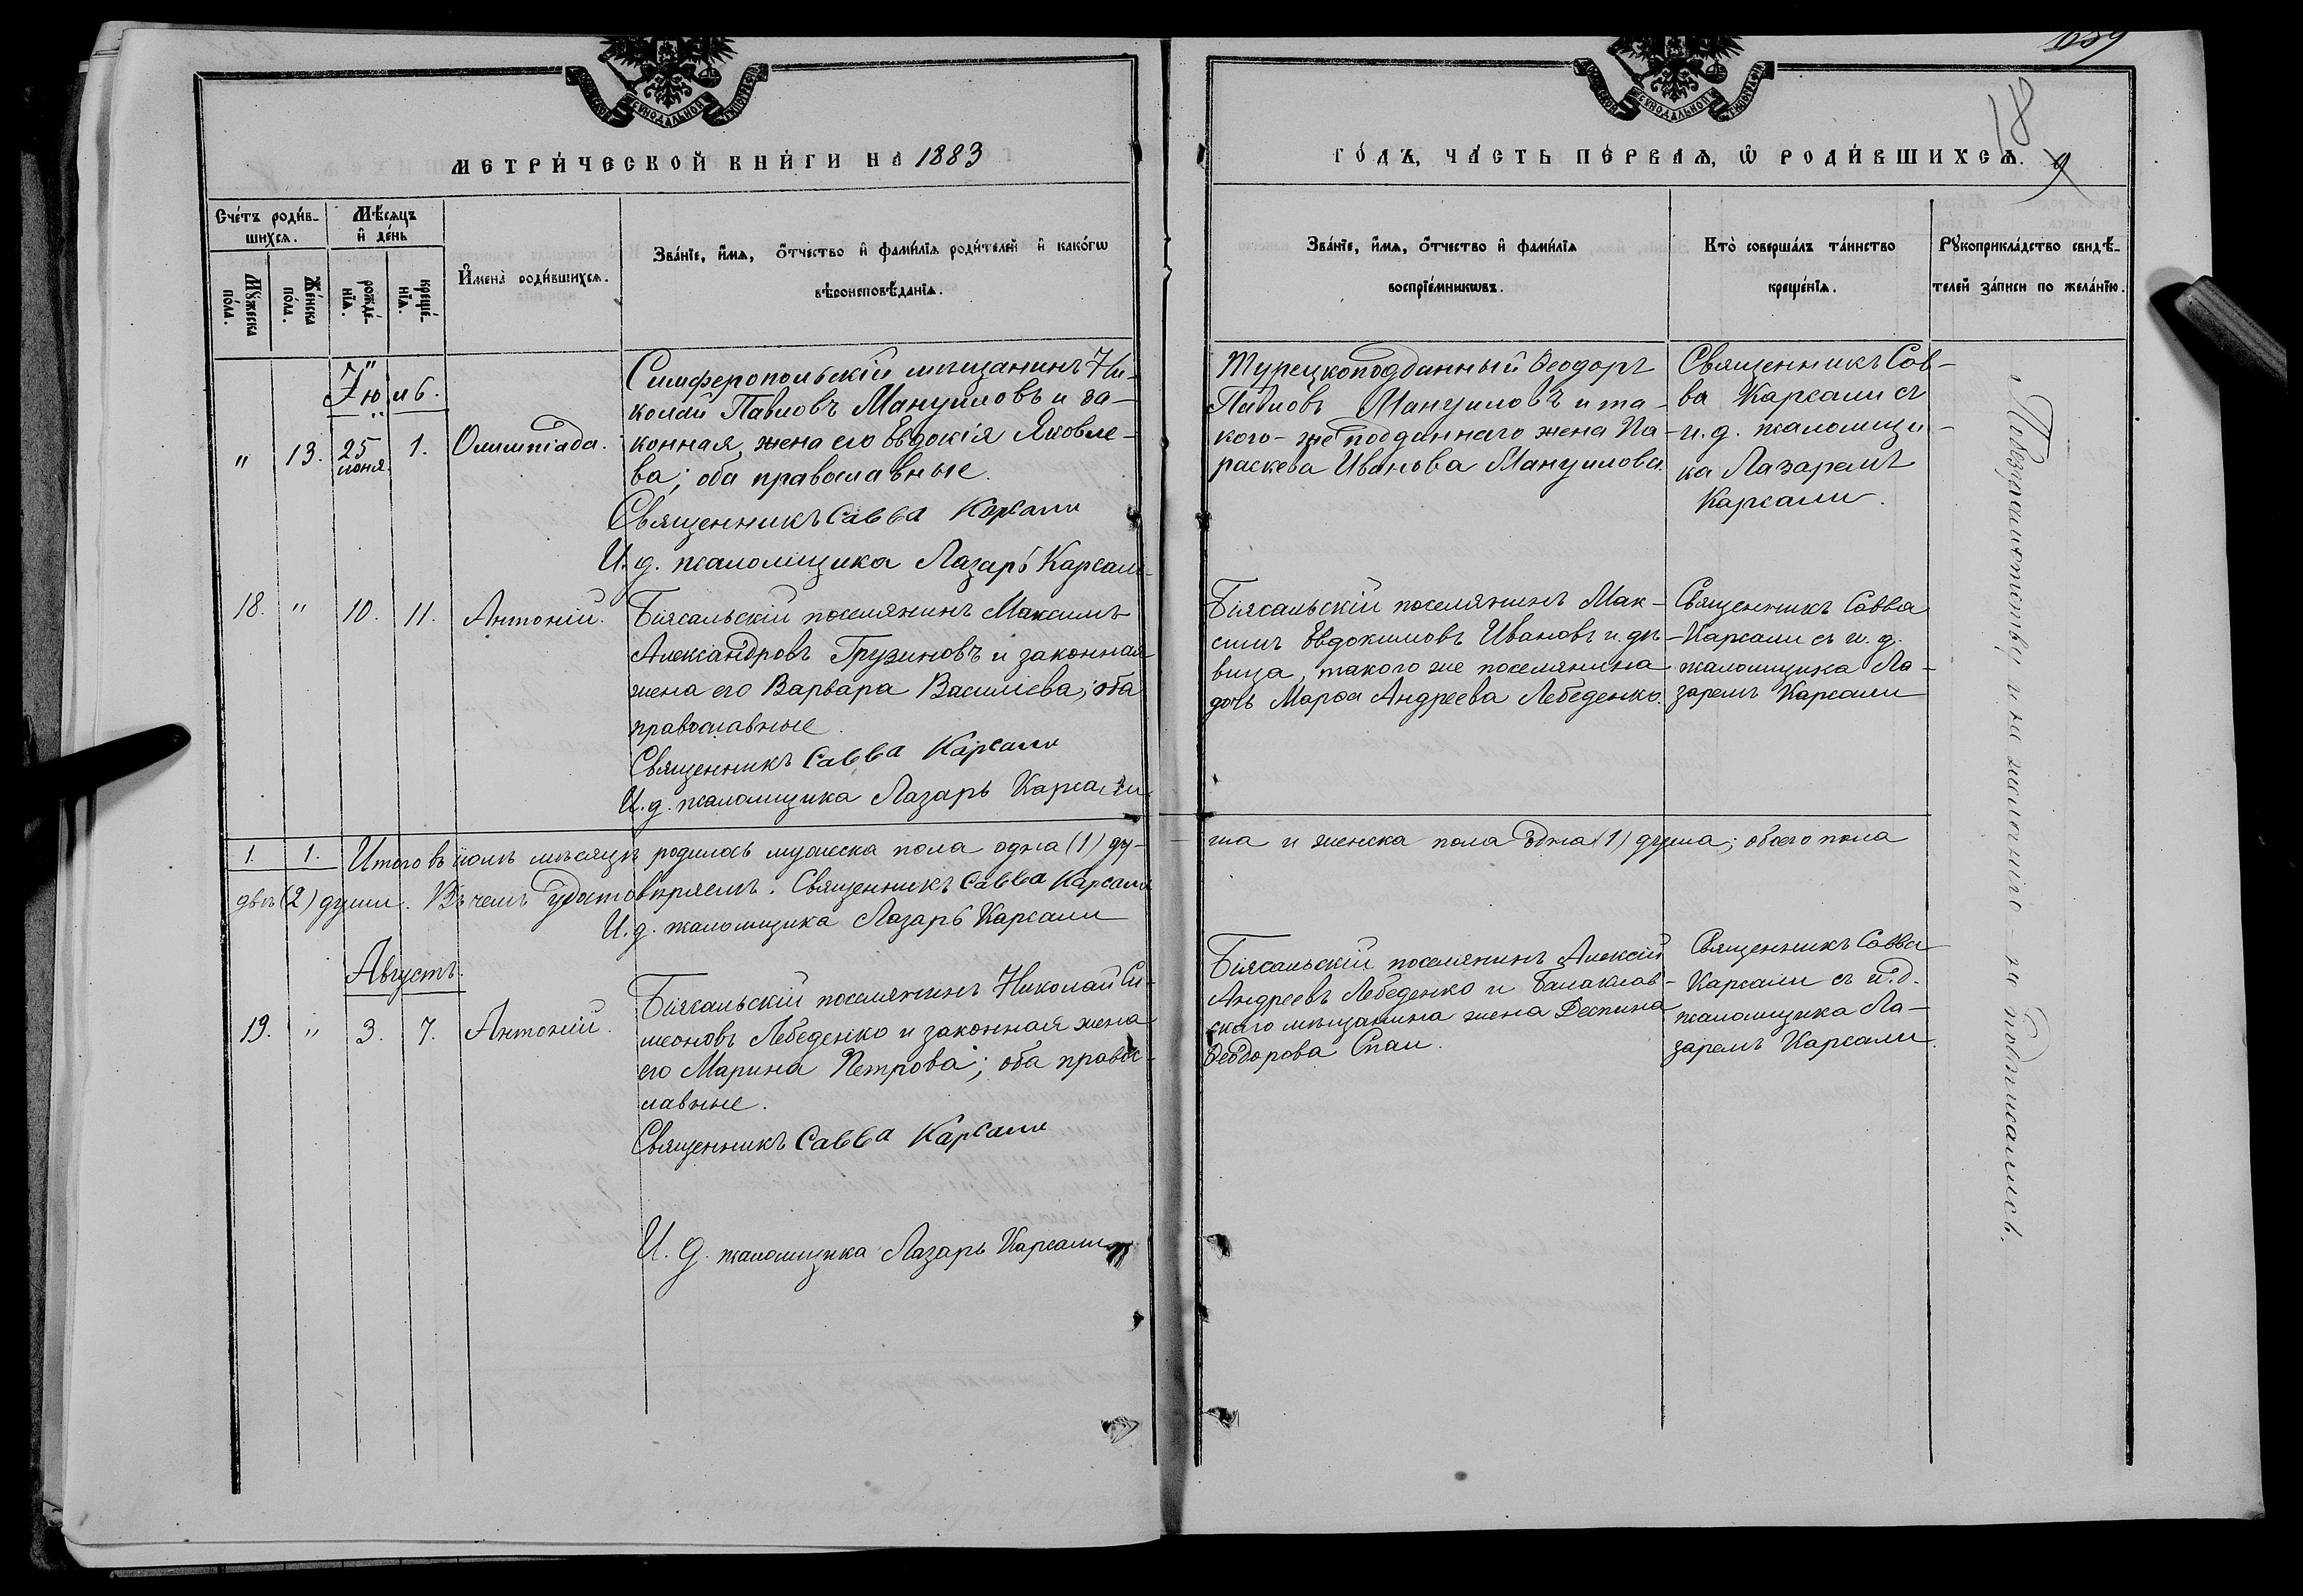 689
18
9
МЕТРИ́ЧЕСКОЙ КНИ́ГИ НА 1883
ГО́ДЪ, ЧА́СТЬ ПЕ́РВАѦ, Ѡ҆ РОДИ́ВШИХСѦ.
Сче́тъ роди́в-
шихсѧ.
Мꙋ́жеска по́ла.
Же́нска по́ла.
Мѣ́сѧцъ
и҆ де́нь
рожде́-
нїѧ.
креще́-
нїѧ.
И҆мена̀ роди́вшихсѧ.
Зва́нїе, и҆́мѧ, ѻ҆́тчество и҆ фами́лїѧ роди́телей и҆ како́гѡ
вѣроисповѣ́данїѧ.
Зва́нїе, и҆́мѧ, ѻ҆́тчество и҆ фами́лїѧ
воспрїе́мникѡвъ.
Кто̀ соверша́лъ та́инство
креще́нїѧ.
Рꙋкоприкла́дство свидѣ́-
телей за́писи по жела́нїю.
Іюль.
" 13. 25 іюня 1. Олимпіада.
Симферопольскій мѣщанинъ Ни-
колай Павловъ Мануиловъ и за-
конная жена его Евдокія Яковле-
ва; оба православные.
Священникъ Савва Карсали
И. д. псаломщика Лазарь Карсали
Турецкоподданный Ѳеодоръ
Павловъ Мануиловъ и та-
кого-же подданнаго жена Па-
раскева Иванова Мануилова
Священникъ Сав-
ва Карсали съ
и. д. псаломщи-
ка Лазаремъ
Карсали.
18. " 10. 11. Антоній.
Біясальскій поселянинъ Максимъ
Александровъ Грузиновъ и законная
жена его Варвара Василіева; оба
православные.
Священникъ Савва Карсали
И. д. псаломщика Лазарь Карсали
Біясальскій поселянинъ Мак-
симъ Евдокимовъ Ивановъ и дѣ-
вица, такого же поселянина
дочь Марѳа Андреева Лебеденко.
Священникъ Савва
Карсали съ и. д.
псаломщика Ла-
заремъ Карсали
1. 1. Итого въ іюлѣ мѣсяцѣ родилось мужеска пола одна (1) ду-
ша и женска пола одна (1) душа; обоего пола
двѣ (2) души. Въ чемъ удостовѣряемъ. Священникъ Савва Карсали
И. д. псаломщика Лазарь Карсали
Августъ.
19. " 3. 7. Антоній.
Біясальскій поселянинъ Николай Си-
меоновъ Лебеденко и законная жена
его Марина Петрова; оба право-
славные.
Священникъ Савва Карсали
И. д. псаломщика Лазарь Карсали
Біясальскій поселянинъ Алексій
Андреевъ Лебеденко и Балаклав-
скаго мѣщанина жена Деспина
Ѳеодорова Спаи.
Священникъ Савва
Карсали съ и. д.
псаломщика Ла-
заремъ Карсали.
По безграмотству и не желанію - не подписались.